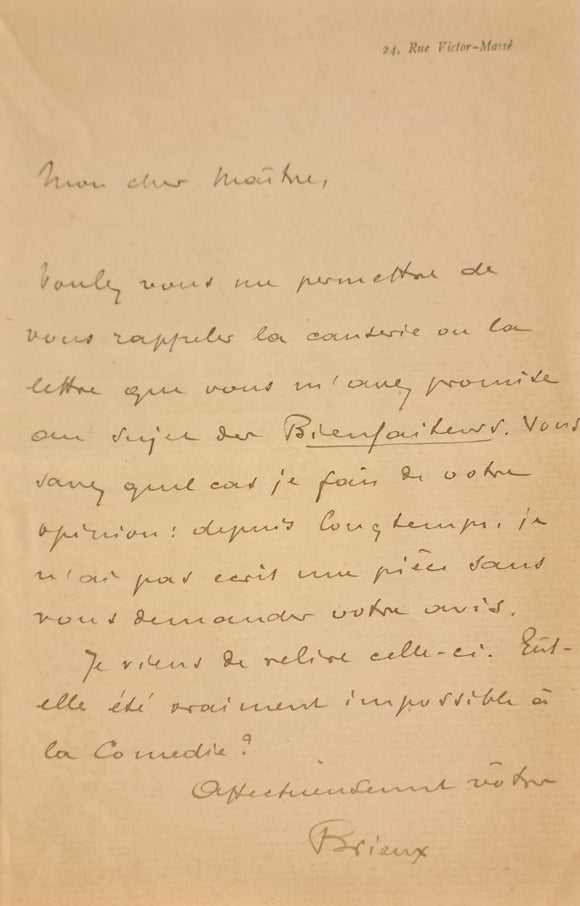 24, Rue Victor-Massé
Mon cher Maître,
Voulez vous me permettre de
vous rappeler la causerie ou la
lettre que vous m'avez promise
au sujet des Bienfaiteurs. Vous
savez quel cas je fais de votre
opinion : depuis longtemps, je
n'ai pas ecrit une pièce sans
vous demander votre avis.
Je viens de relire celle-ci. Eût-
elle été vraiment impossible à
la Comedie ?
Affectueusement vôtre
Brieux